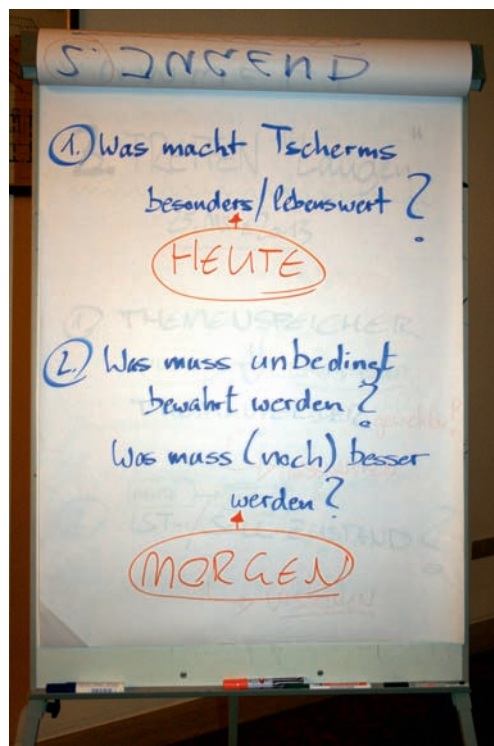 5. JUGEND
1. Was macht Tscherms
besonders/lebenswert?
HEUTE
2. Was muss unbedingt
bewahrt werden?
Was muss (noch) besser
werden?
MORGEN